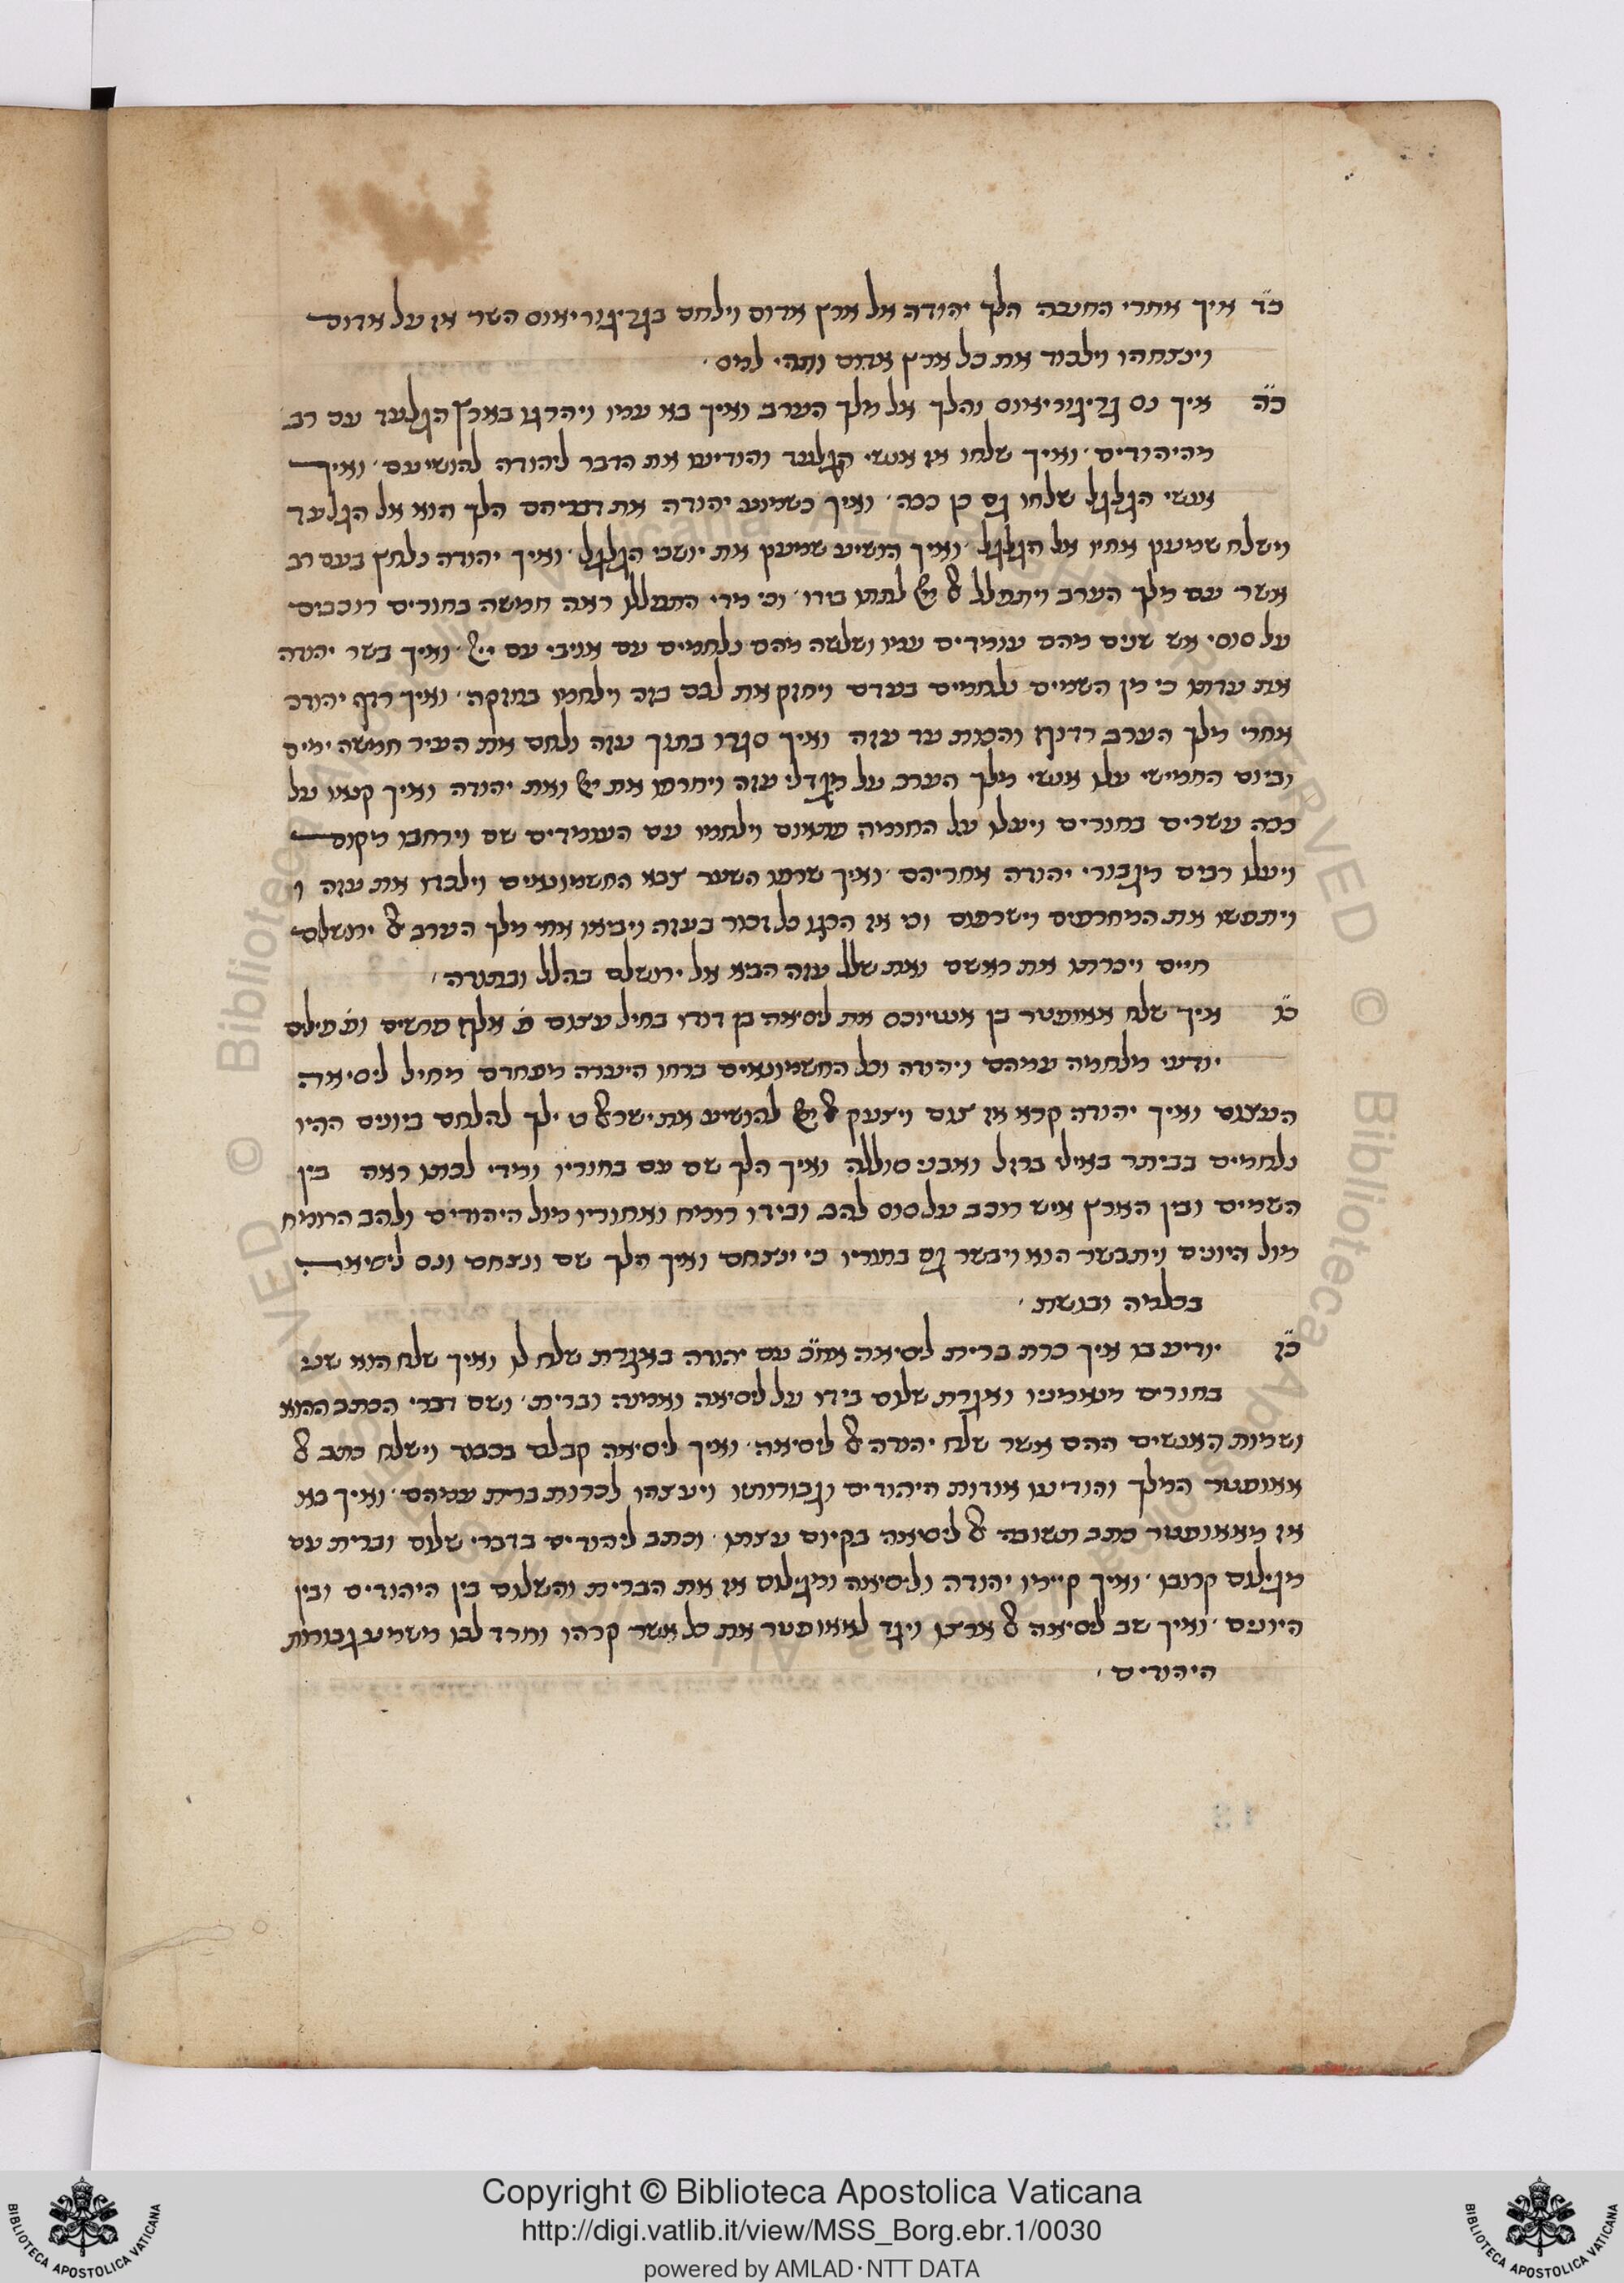 כ״ד איך אחרי החנכה הלך יהודה אל ארץ אדום וילחם בגריגוריאוס השר אז על אדום
וינצחהו וילכוד את כל ארץ אדום ותהי למס
כ״ה איך נס גריגוריאוס והלך אל מלך הערב ואיך בא עמו ויהרגו בארץ הגלעד עם רב
מהיהודים ואיך שלחו אז אנשי הגלעד והודיעו את הדבר ליהודה להושיעם ואיך
אנשי הגלגל שלחו גם כן ככה ואיך כשמוע יהודה את דבריהם הלך הוא אל הגלעד
וישלח שמעון אחיו אל הגלגל ואיך הושיע שמעון את יושבי הגלגל ואיך יהודה נלחץ בעם רב
אשר עם מלך הערב ויתפלל לתתו בידו וכי מדי התפללו ראה חמשה בחורים רוכבים
על סוסי אש שנים מהם עומדים עמו ושלשה מהם נלחמים עם אויבי עם ואיך בשר יהודה
את עדתו כי מן השמים נלחמים בעדם ויחזק את לבם בזה וילחמו בחזקה ואיך רדף יהודה
אחרי מלך הערב רדוף והכות עד עזה ואיך סגרו בתוך עזה נלחם את העיר חמשה ימים
וביום החמישי עלו אנשי מלך הערב על מגדלי עזה ויחרפו את ואת יהודה ואיך קנאו על
ככה עשרים בחורים ויעלו על החומיה פתאום וילחמו עם העומדים שם וירחבו מקום
ויעלו רבים מגבורי יהודה אחריהם ואיך שרפו השער צבא החשמונאים וילכדו את עזה ו
ויתפשו את המחרפים וישרפום וכי אז הרגו כל זכור בעזה ויביאו את מלך הערב ירושלם
חיים ויכרתו את ראשם ואת שלל עזה הביא אל ירושלם בהלל ובתודה
כ״ו איך שלח אאופטר בן אנטיוכס את ליסיאה בן דודו בחיל עצום פ׳ אלף פרשים ופ׳ פילים
יודעי מלחמה עמהם ויהודה וכל החשמונאים ברחו היערה מפחדם מחיל ליסיאה
העצום ואיך יהודה קרא אז צום ויצעק להושיע את ילך להלחם ביונים ההיו
נלחמים בביתר באילי ברזל ואבני סוללה ואיך הלך שם עם בחוריו ומדי לכתו ראה בין
השמים ובין הארץ איש רוכב על סוס להב ובידו רומח ואחוריו מול היהודים ולהב הרומח
מול היונים ויתבשר הוא ויבשר גם בחוריו כי ינצחם ואיך הלך שם ונצחם ונס ליסיאה
בכלמיה ובבשת
כ״ז יודיע בו איך כרת ברית ליסיאה אח״כ עם יהודה באגרת שלח לו ואיך שלח הוא שני
בחורים מנאמניו ואגרת שלום בידו על ליסיאה ואמנה וברית ושם דברי הכתב ההוא
ושמות האנשים ההם אשר שלח יהודה ליסיאה ואיך ליסיאה קבלם בכבוד וישלח כתב
אאופטר המלך והודיעו אודות היהודים וגבורותו ויעצהו לכרות ברית עמהם ואיך בא
אז מאאופטר כתב תשובה ליסיאה בקיום עצתו וכתב ליהודים בדברי שלום וברית עם
מגילום קרובו ואיך קיימו יהודה וליסיאה ומגילום אז את הברית והשלום בין היהודים ובין
היונים ואיך שב ליסיאה ארצו ויגד לאאופטר את כל אשר קרהו וחרד לבו משמע גבורות
היהודים
Copyright © Biblioteca Apostolica Vaticana
http://digi.vatlib.it/view/MSS_Borg.ebr.1/0030
powered by AMLAD·NTT DATA